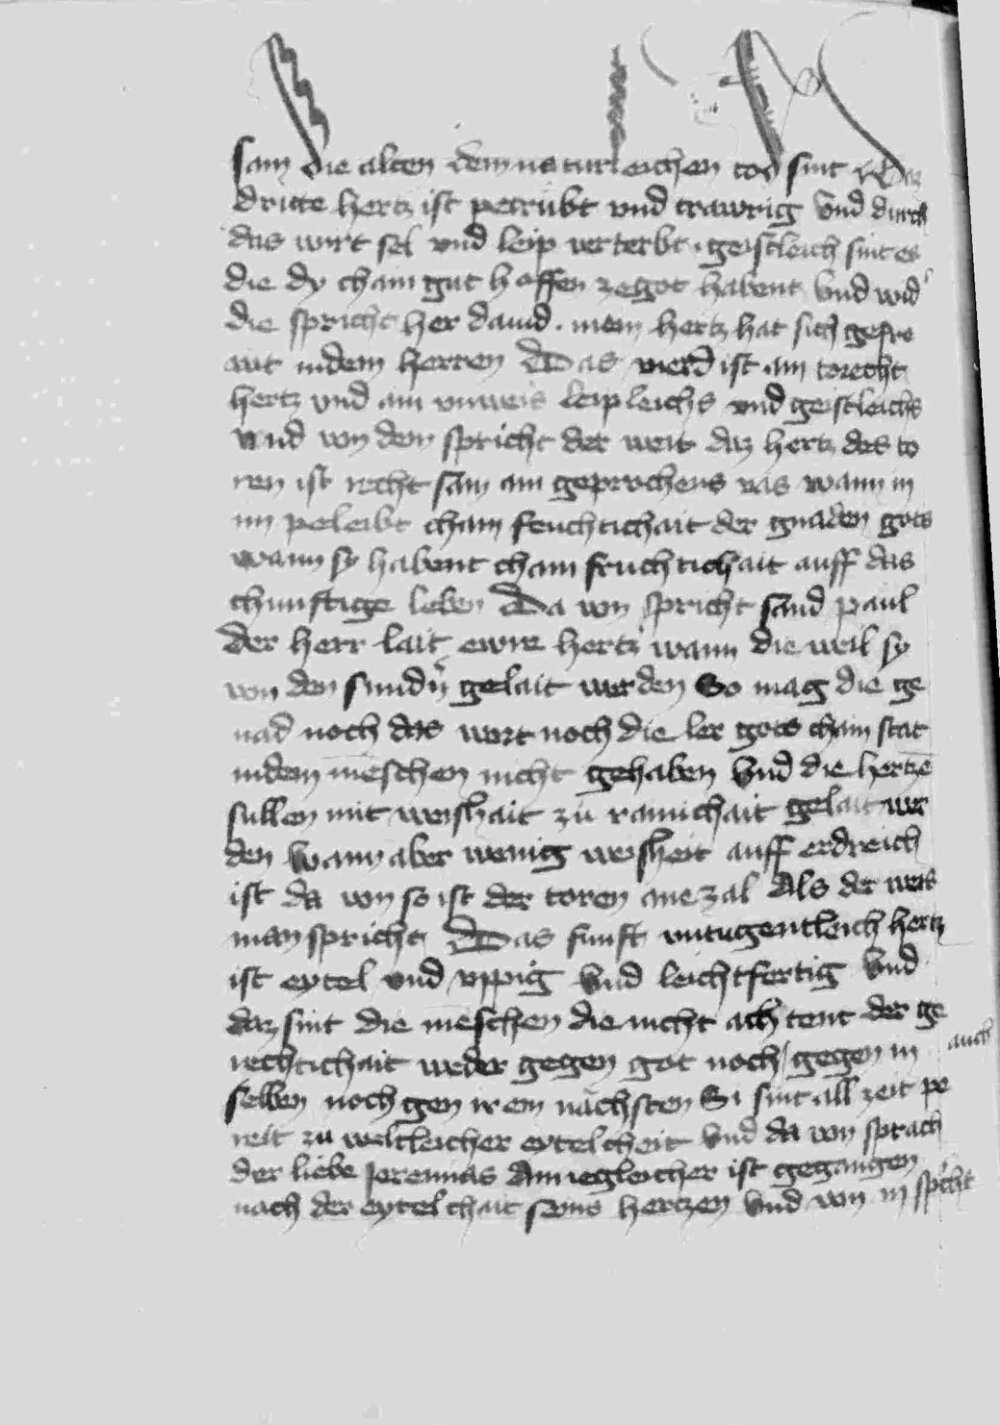 sam die alten dem naturleichen tod sint Daz
dritte hertz ist petrubt vnd trawrig Vnd durch
das wirt sel vnd leip verterbt · geistleich sint es
die dy chain gut hoffen ze got habent Vnd wid'
die spricht her dauid · mein hertz hat sich gefre
wt in dem herren Das vierd ist ain torecht
hertz vnd ain vnweis leipleichs vnd geistleichs
vnd von dem spricht der weis daz hertz des to
ren ist recht sam ain geprochens vas wann in
im peleibt chain feuchtichait der gnaden gots
wann sy habent chain fruchtichait auff das
chunftige leben Da von spricht sand paul
der herr lait ewre hertz wann die weil sy
von den sundn̄ gelait werden So mag die ge
nad noch das wort noch die ler gots chain stat
in dem meschen nicht gehaben Vnd die hertzē
sullen mit weishait zu rainichait gelait wer
den Wann aber wenig weisheit auff erdreich
ist da von so ist der toren ane zal Als der weis
man spricht Das funft vntugentleich hertz
ist eytel vnd vppig Vnd leichtfertig Vnd
daz sint die meschen die nicht achtent der ge
rechtichait weder gegen got noch / gegen in auch
selben noch gen irem nächsten Si sint all zeit pe
reit zu weltleicher eytelcheit Vnd da von sprach
der liebe Jeremias Ain iegleicher ist gegangen
nach der eytelchait seins hertzen Vnd von in sp'cht